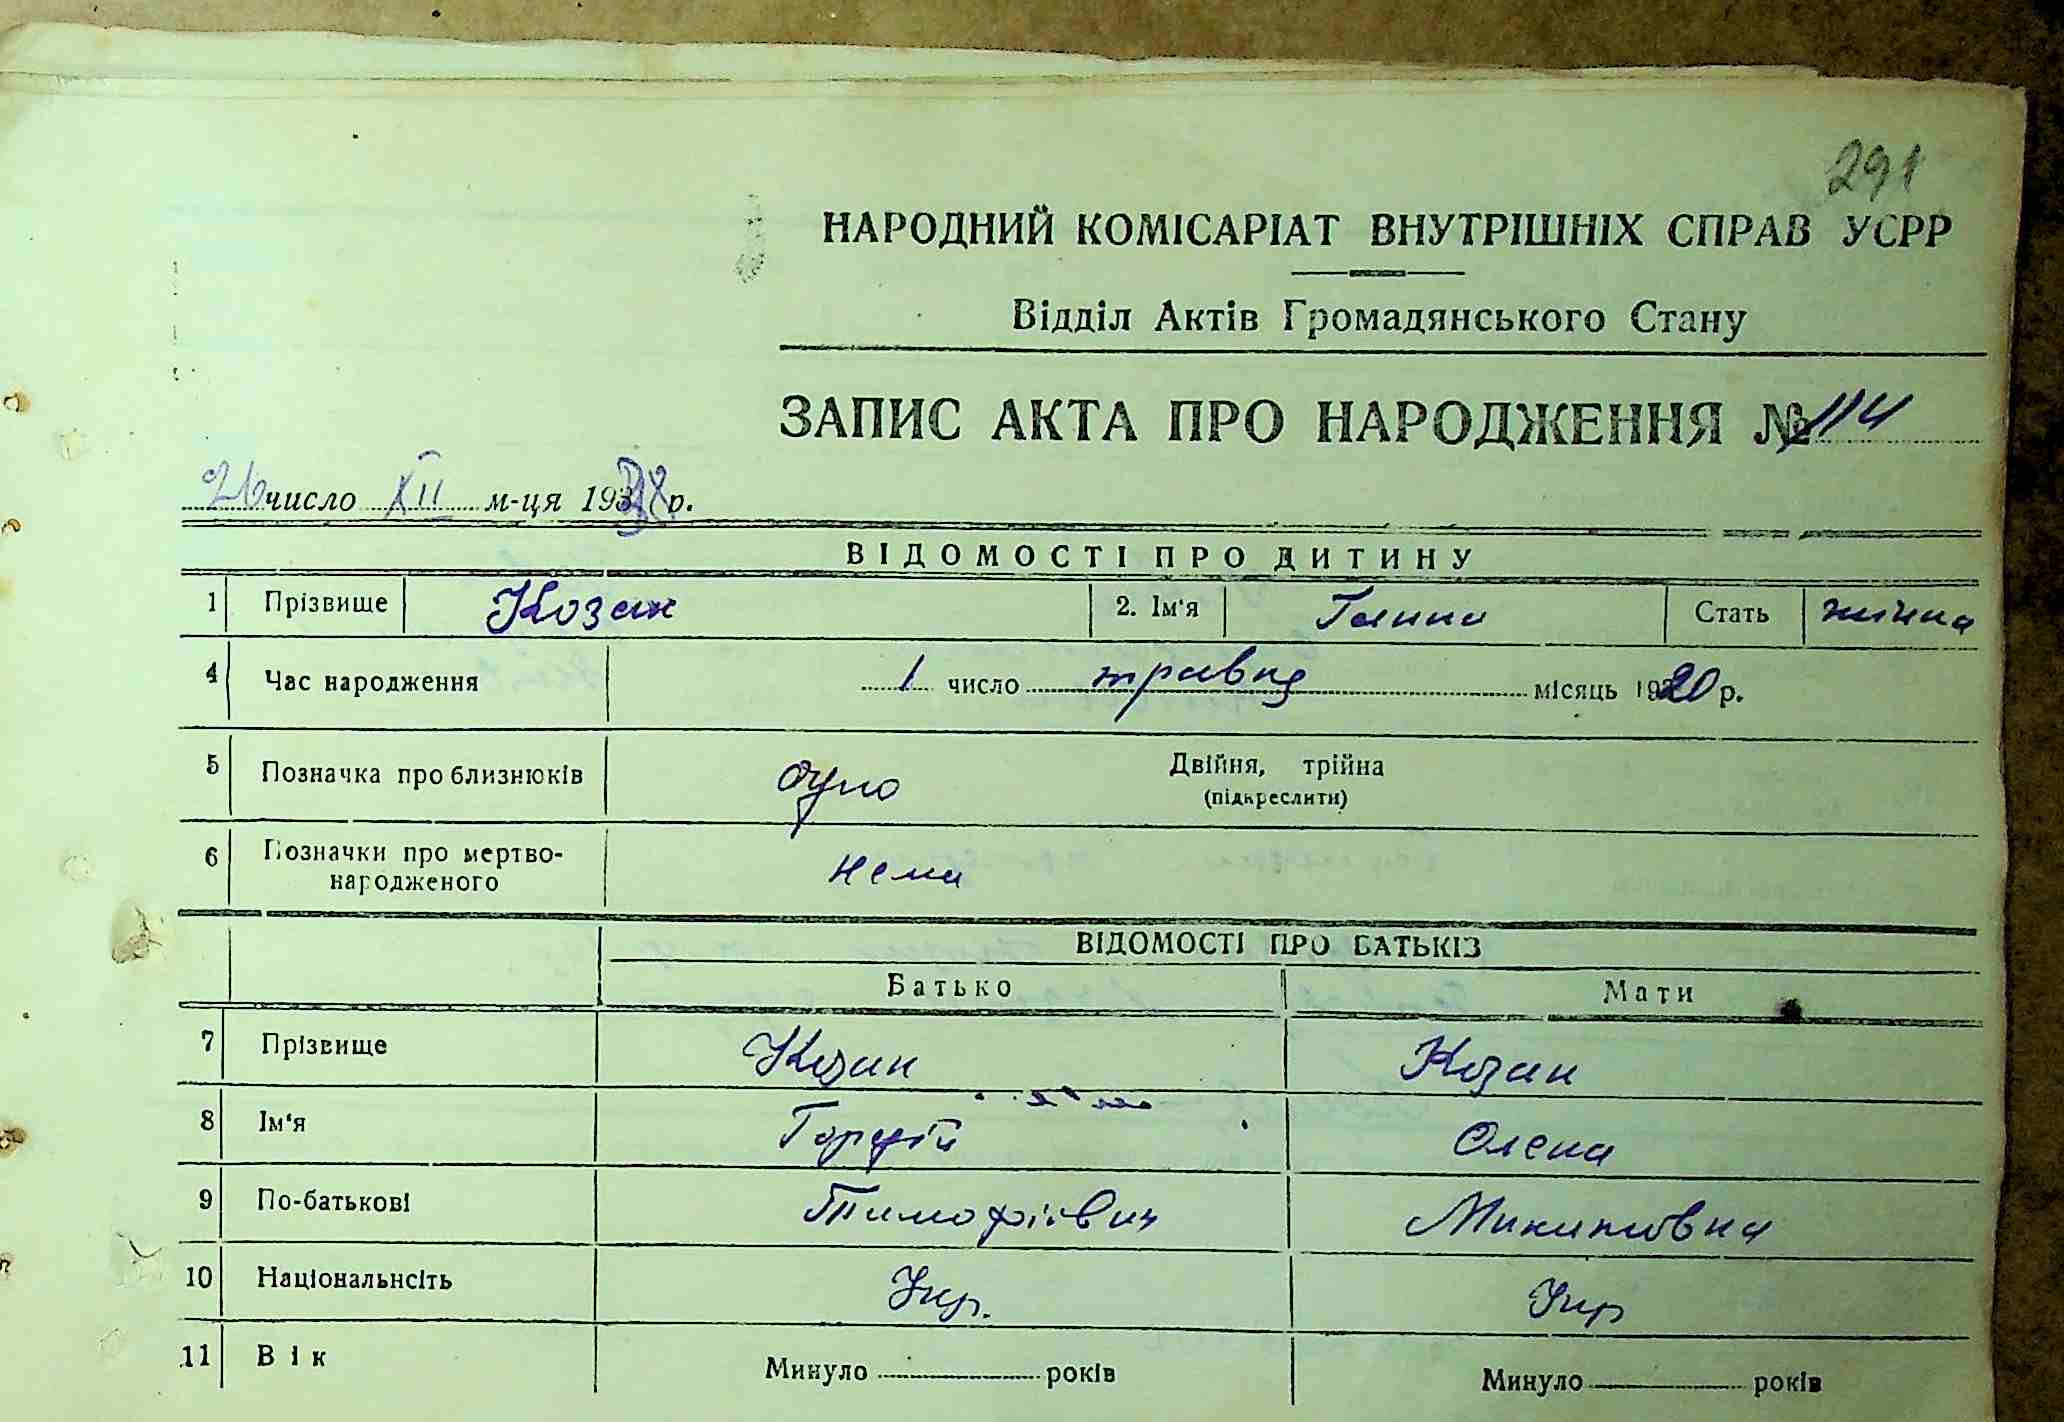 291
НАРОДНИЙ КОМІСАРІАТ ВНУТРІШНІХ СПРАВ УСРР
Відділ Актів Громадянського Стану
ЗАПИС АКТА ПРО НАРОДЖЕННЯ № 114
26 число XII м-ця 193 р.
ВІДОМОСТІ ПРО ДИТИНУ
1 Прізвище Козак 2. Ім'я Галина Стать жінка
4 Час народження 1 число травня місяць 1920 р.
5 Позначка про близнюків одно Двійня, трійна
(підкреслити)
6 Позначки про мертво-
народженого нема
ВІДОМОСТІ ПРО БАТЬКІВ
Батько Мати
7 Прізвище Козак Козак
8 Ім'я Гордій Олена
9 По-батькові Тимофіївич Микитовна
10 Національнсіть Укр. Укр
11 Вік Минуло років Минуло років